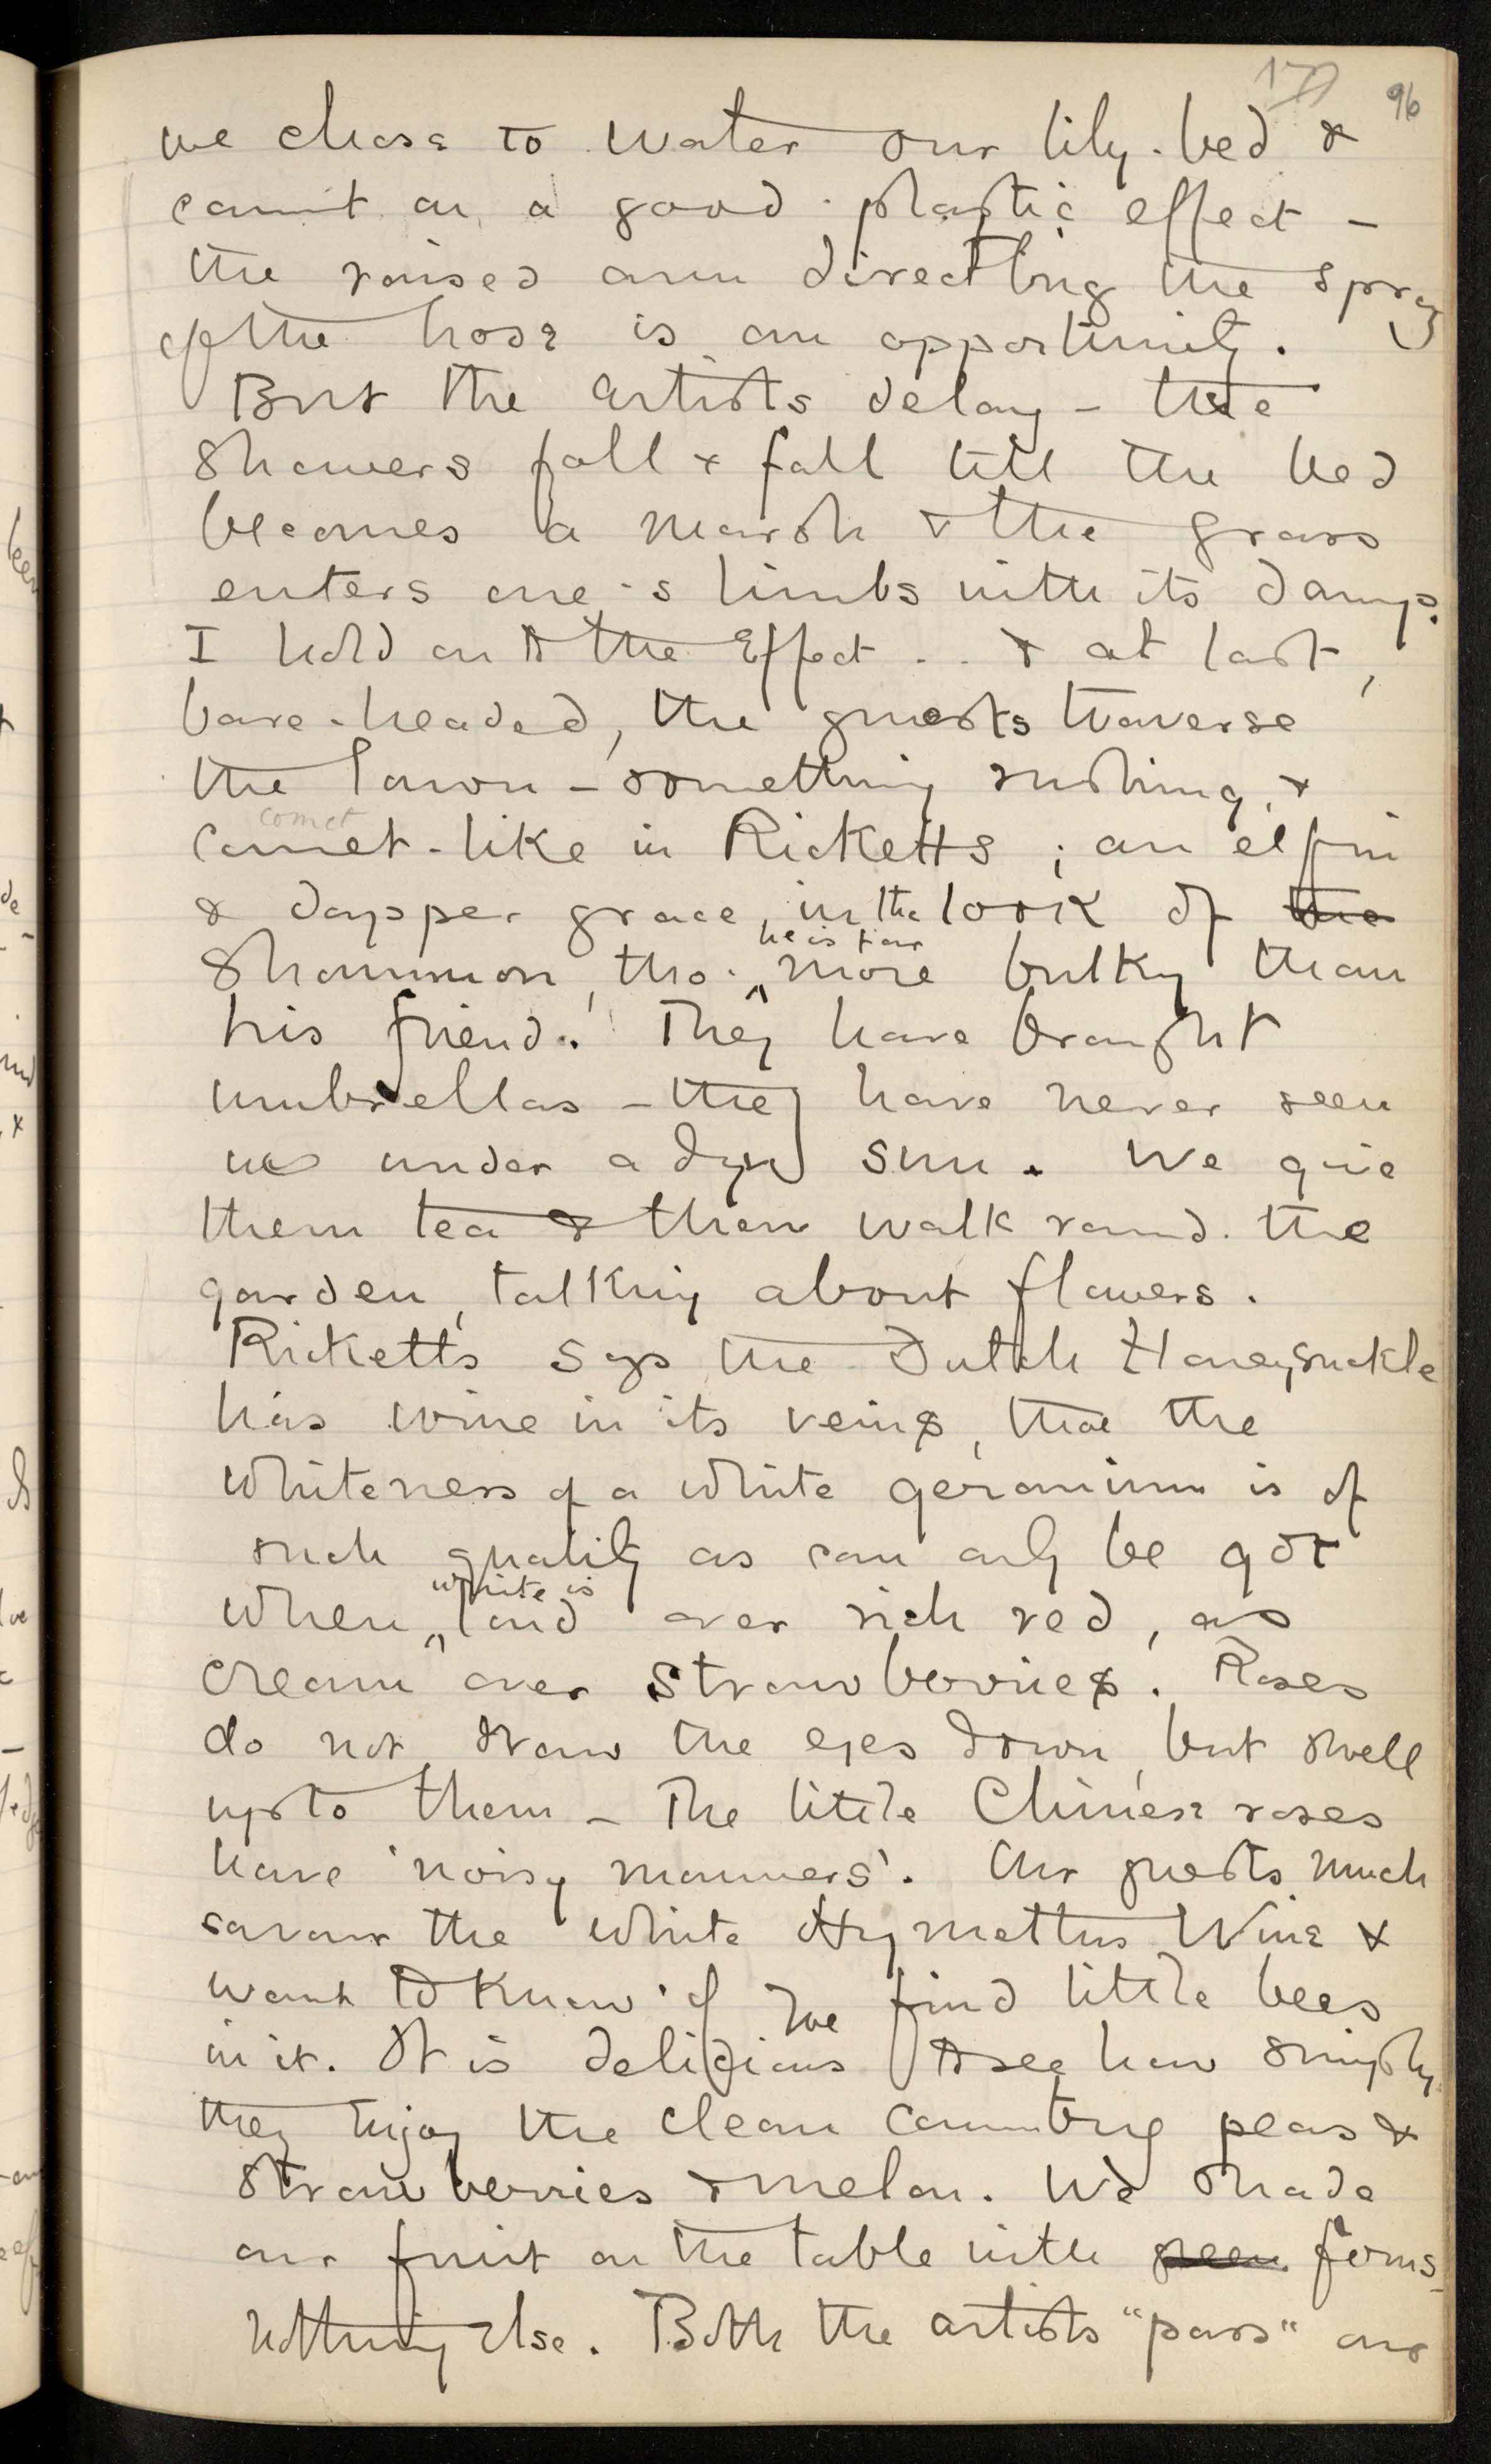 96
we chose to water our lily-bed &
count on a good plastic effect -
the raised arm directing the spray
of the hose is an opportunity.
But the artists delay - the
showers fall & fall till the bed
becomes a marsh & the grass
enters one's limbs with its damp.
I hold on to the Effect . . & at last,
bare-headed, the guests traverse
the lawn - something rushing, &
comet
comet-like in Ricketts ; an elfin
& dapper grace, in the look of the
he is far
Shannon, tho' more bulky than
his friend. They have brought
umbrellas - they have never seen
us under a dry sun. We give
them tea & then walk round the
garden, talking about flowers.
Ricketts says the Dutch Honeysuckle
has wine in its veins, that the
whiteness of a white geranium is of
such quality as can only be got
white is
when laid over rich red, as
cream over strawberries. Roses
do not draw the eyes down, but swell
up to them - The little Chinese roses
have 'noisy manners'. Our guests much
savour the white Hymettus Wine &
want to know if we find little bees
in it. It is delicious to see how simply
they enjoy the clean country peas &
strawberries & melon. We shade
our fruit on the table with green ferns -
nothing else. Both the artists "pass" our